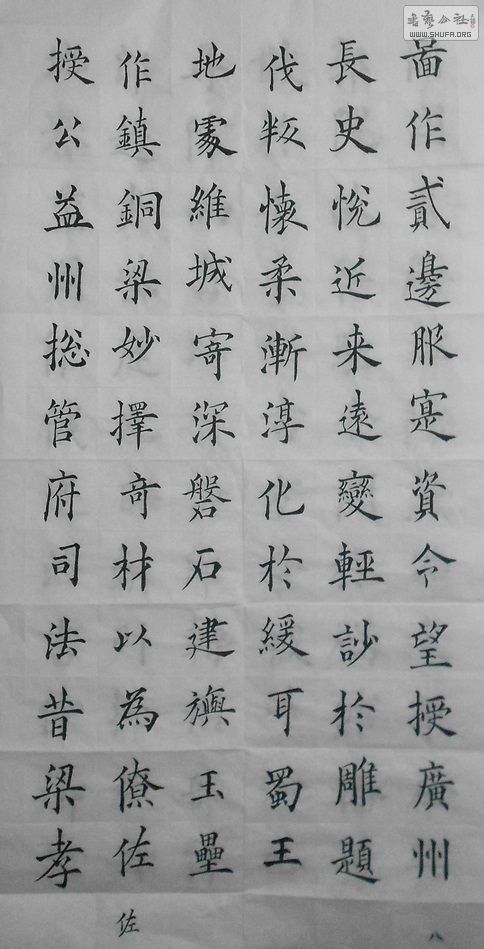 書藝公社
WWW.SHUFA.ORG
啚作貳邊服寔資令望授廣州
八
長史悅近来遠變輕訬於雕題
伐叛懷柔漸淳化於緩耳蜀王
地處維城寄深磐石建旟玉壘
作鎮銅梁妙擇奇材以為僚佐
佐
授公益州揔管府司法昔梁孝